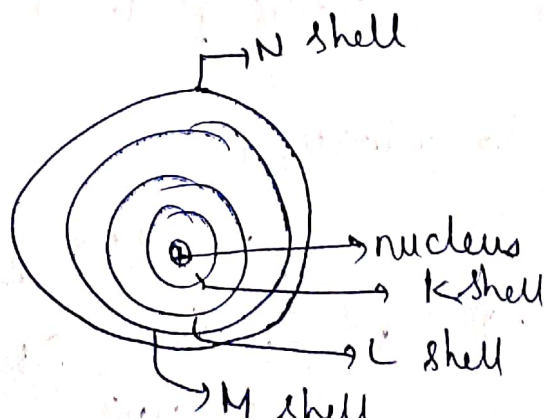 N shell
nucleus
K shell
L shell
M shell